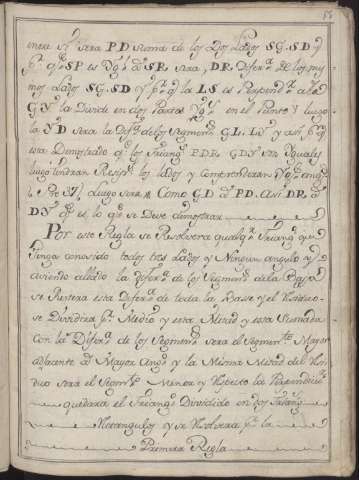 sera PD suma de los Dos Lados SG. SD y
SP es Yg.l a SR sera, DR. Difer.a de los mis
mos Lados SG. SD y la LS es Perpend.r a la
GY la Divide en dos Partes Yg.s en el Punto y luego
la YD sera la Dif.a de los Segmen.s GL. LD y asi
esta Demostrado los Triang.s PDR. GDY son Yguales
luego tendran los lados y comprenderan
37 Luego sera Como GD a PD. asi DR a
DY es lo q.e se Deve demostrar
Por este Regla se Resolvera qualq.r Triang.o que
tenga conosido todos tres Lados y Ningun angulo y
aviendo allado la Difer.a de los Segmen.s de la Basa
se Restara esta Difer.a de toda la Basse y el Residuo
se Dividira p.r Medio y esta Mitad y esta Sumada
con la Difer.a de los Segmen.s sera el Segmen.to Mayor
adjacente al Mayor Ang.o y la Misma Mitad del Resi
duo sera el Segm.to Menor y la Perpendicu.r
quedara el Triang.o Dividido en dos Triang.s
Retangulos y se Resolvera p.r la
Primera Regla